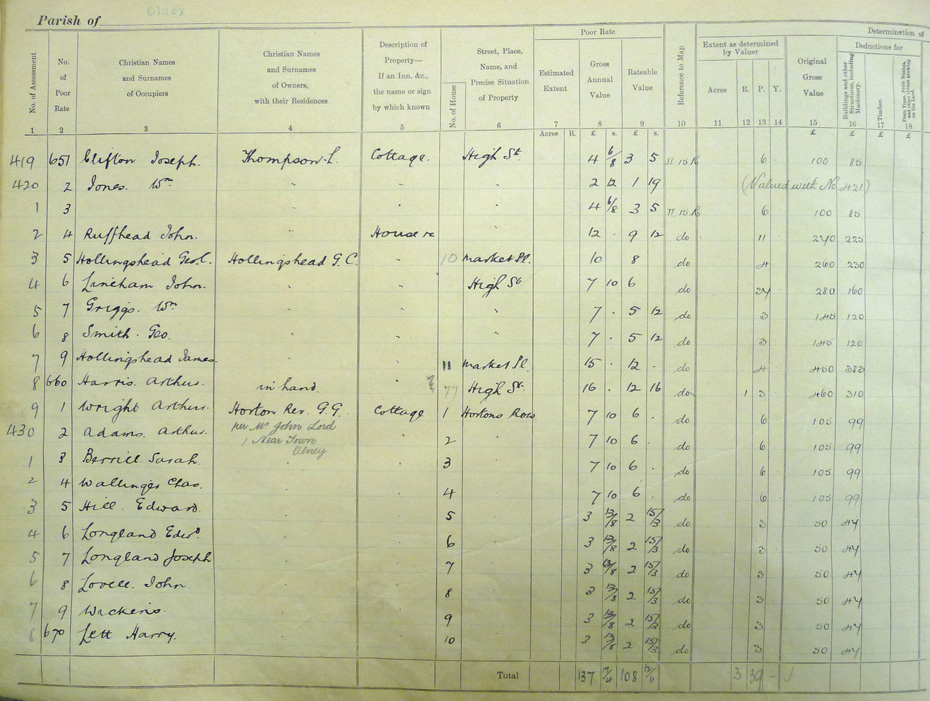 Parish of Olney
Determination of
Poor Rate
No. of Assessment
No. of Poor Rate
Christian Names and Surnames of Occupiers
Christian Names and Surnames of Owners, with their Residences
Description of Property— If an Inn, &c., the name or sign by which known
No. of House
Street, Place, Name, and Precise Situation of Property
Estimated Extent
Gross Annual Value
Rateable Value
Reference to Map.
Extent as determined by Valuer
Acres R. P. Y.
Original Gross Value
Deductions for
Buildings and other Structures, including Machinery.
Timber.
1 2 3 4 5 6 7 8 9 10 11 12 13 14 15 16 17 18
Acres R. £ s. £ s. £ £
419 651 Clifton Joseph. Thompson L. Cottage. High St. 4 6/8 3 5 6 100 85
420 2 Jones. Wm " " " 2 12 1 19 (Valued with No 421)
1 3 " " " 4 6/8 3 5 6 100 85
2 4 Ruffhead John. " House &c " 12 . 9 12 do 11 240 225
3 5 Hollingshead Geo. C. Hollingshead G. C. " 10 Market Pl. 10 8 do 4 260 230
4 6 Lineham John. " " High St 7 10 6 do 34 280 160
5 7 Griggs. Wm " " " 7 . 5 12 do 3 145 120
6 8 Smith. Geo. " " " 7 . 5 12 do 3 145 120
7 9 Hollingshead James " " 11 Market Pl. 15 . 12 . do 4 450 383
8 660 Harris. Arthur. in hand. " 77 High St. 16 . 12 16 do 1 3 460 310
9 1 Wright Arthur. Horton Rev. G. G. Cottage 1 Hortons Row 7 10 6 . do 6 105 99
per Mr John Lord
1 Near Town
Olney
430 2 Adams. Arthur. " 2 " 7 10 6 . do 6 105 99
1 3 Berrill Sarah. " " 3 " 7 10 6 . do 6 105 99
2 4 Wallinger Chas. " " 4 " 7 10 6 . do 6 105 99
3 5 Hill. Edward. " " 5 " 3 13/8 2 15/3 do 3 50 44
4 6 Longland Edwd. " " 6 " 3 13/8 2 15/3 do 3 50 44
5 7 Longland Joseph " " 7 " 3 13/8 2 15/3 do 3 50 44
6 8 Lovell. John. " " 8 " 3 13/8 2 15/3 do 3 50 44
7 9 Wickens. " " 9 " 3 13/8 2 15/3 do 3 50 44
8 670 Lett Harry. " " 10 " 3 13/8 2 15/3 do 3 50 44
Total 137 108 3 39 -